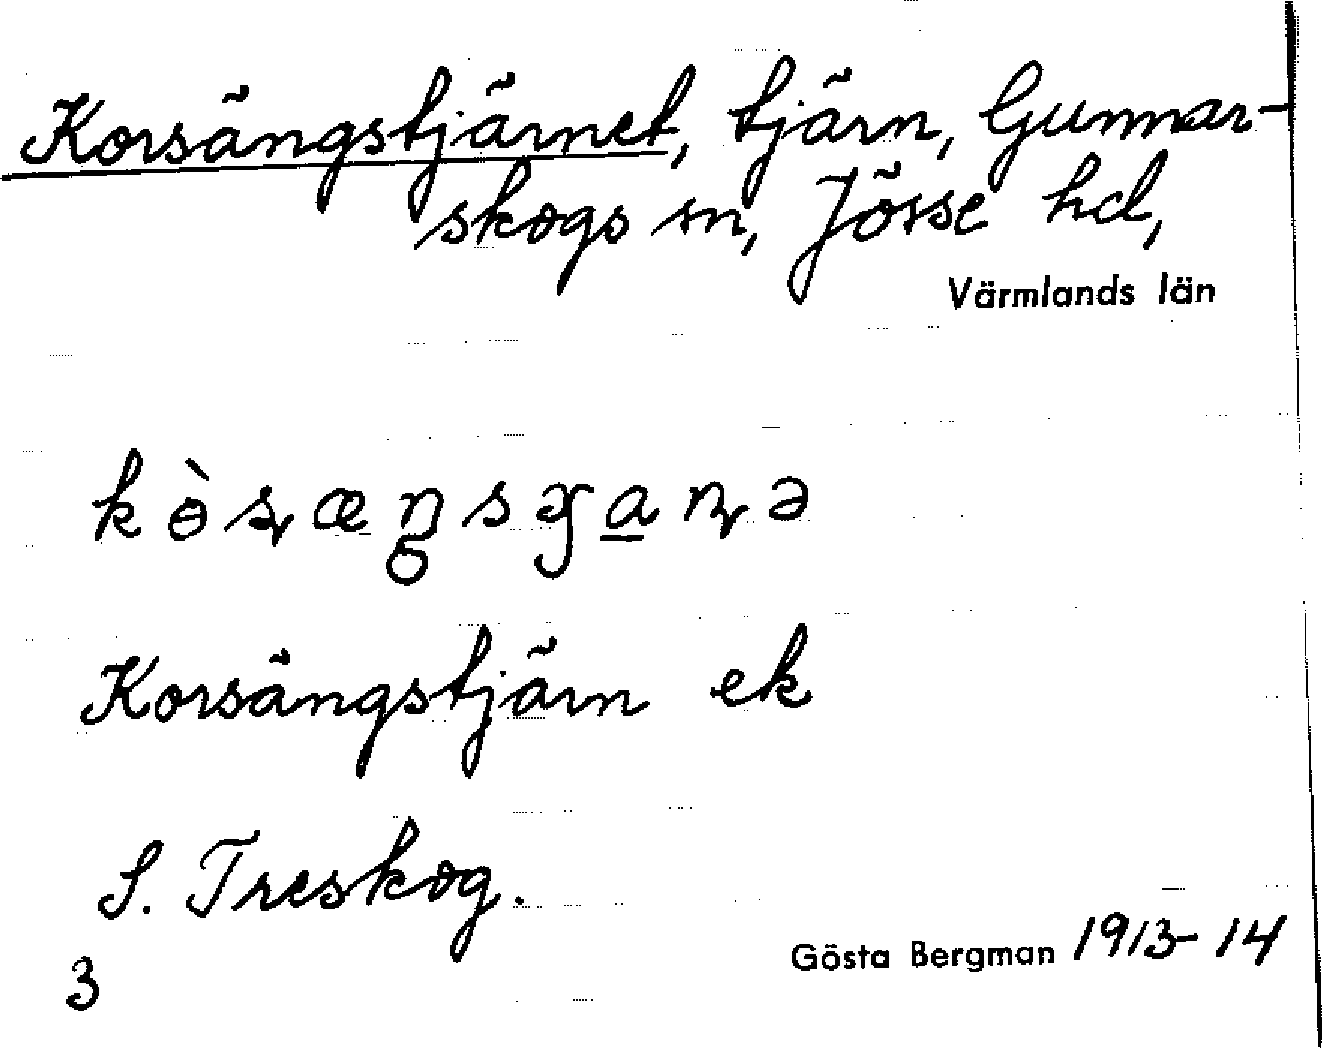 Korsängstjärnet, tjärn, Gunnar-
skogs sn, Jösse hd,
Värmlands län
Korsängstjärn ek
S. Treskog.
3
Gösta Bergman 1913-14